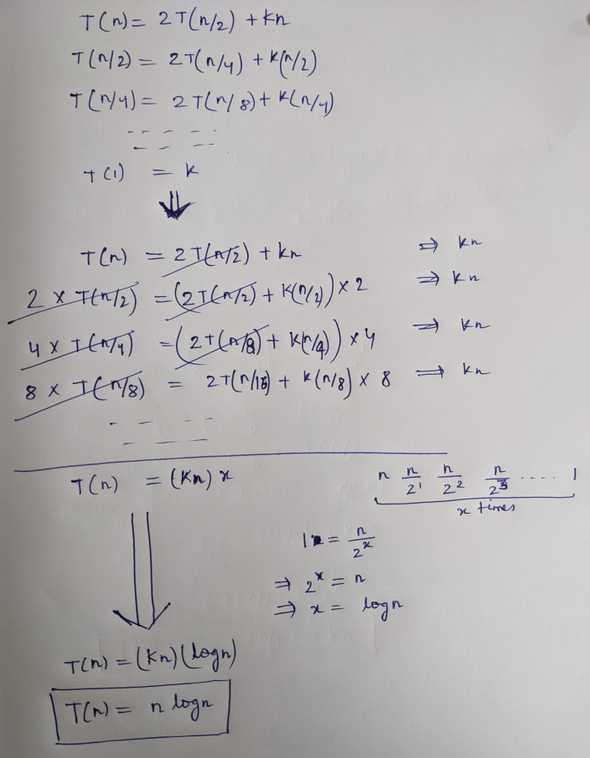 T(n) = 2T(n/2) + kn
T(n/2) = 2T(n/4) + k(n/2)
T(n/4) = 2T(n/8) + k(n/4)
T(1) = k
⇓
T(n) = 2T(n/2) + kn ⇒ kn
2 × T(n/2) = (2T(n/2) + k(n/2)) × 2 ⇒ kn
4 × T(n/4) = (2T(n/8) + k(n/4)) × 4 ⇒ kn
8 × T(n/8) = 2T(n/16) + k(n/8) × 8 ⇒ kn
T(n) = (kn) x
n n/2^1 n/2^2 n/2^3 .... 1
x times
1 = n/2^x
⇒ 2^x = n
⇒ x = logn
T(n) = (kn)(logn)
T(n) = n logn